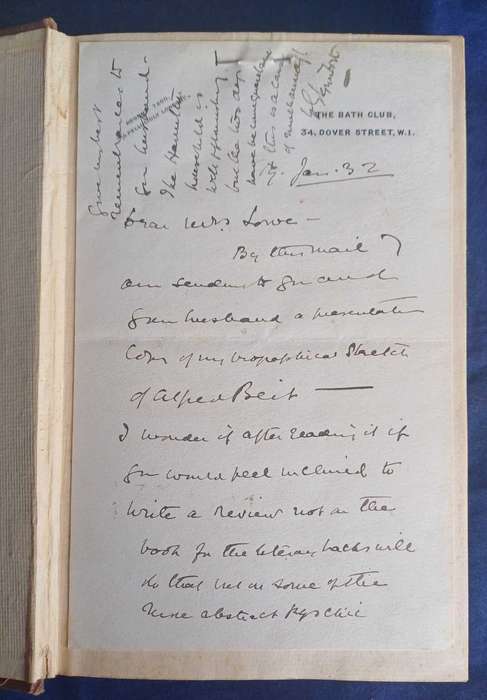 THE BATH CLUB,
34, DOVER STREET, W.1.
Jan. 32
Dear Mrs. Lowe —
By this mail I
am sending to you and
your husband a presentation
Copy of my biographical Sketch
of Alfred Beit —
I wonder if after reading it if
you would feel inclined to
write a review not on the
book for the literary hacks will
do that but on some of the
more abstract psychic
Give my best
remembrances to
your husband —
The Hamilton
household is
well & flourishing
but the two
have been
& this is a cause
of